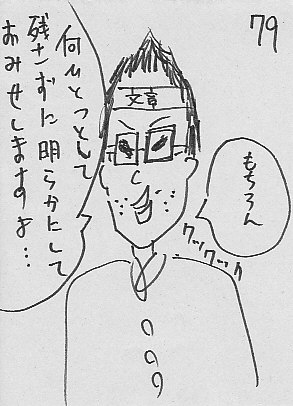 79
もちろん
クックックッ
文章
何ひとつとして
残さずに明らかにして
おみせしますよ…